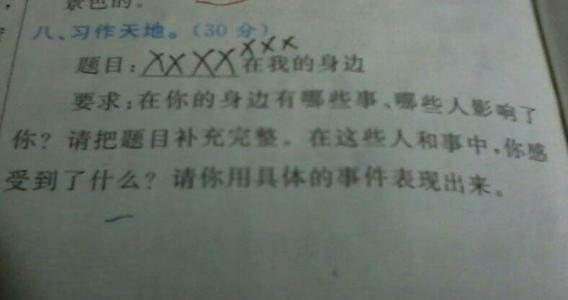 景色的。
八、习作天地。(30分)
题目:XXXXXXX在我的身边
要求:在你的身边有哪些事、哪些人影响了
你?请把题目补充完整。在这些人和事中,你感
受到了什么?请你用具体的事件表现出来。